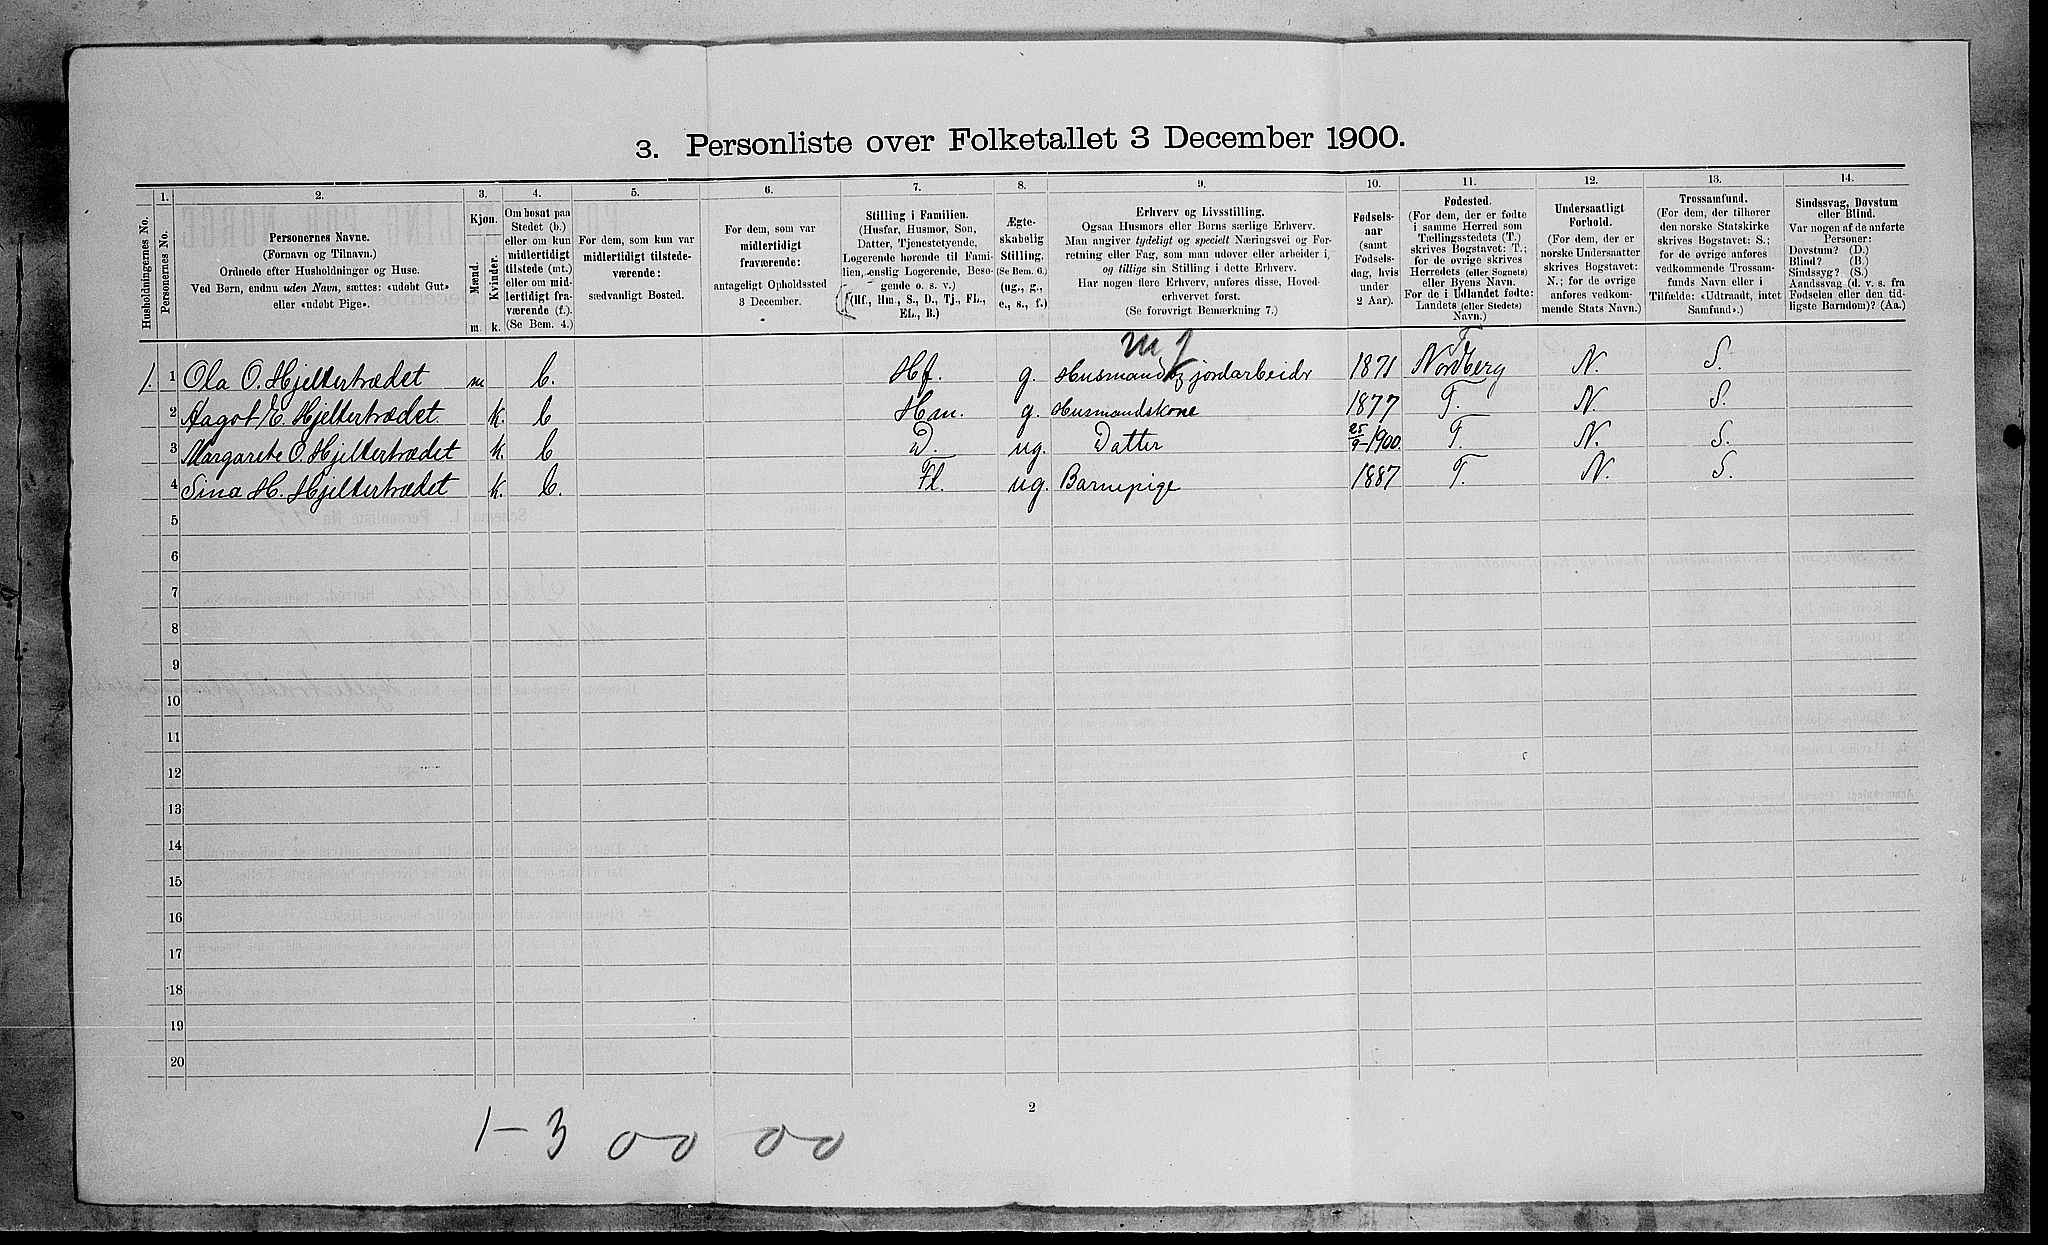 3. Personliste over Folketallet 3 December 1900.
Husholdningernes No.
1.
Personernes No.
2.
Personernes Navne.
(Fornavn og Tilnavn.)
Ordnede efter Husholdninger og Huse.
Ved Børn, endnu uden Navn, sættes: «udøbt Gut»
eller «udøbt Pige».
3.
Kjøn.
Mænd.
Kvinder.
m.
k.
4.
Om bosat paa
Stedet (b.)
eller om kun
midlertidigt
tilstede (mt.)
eller om mid-
lertidigt fra-
værende (f.).
(Se Bem. 4.)
5.
For dem, som kun var
midlertidigt tilstede-
værende:
sædvanligt Bosted.
6.
For dem, som var
midlertidigt
fraværende:
antageligt Opholdssted
3 December.
7.
Stilling i Familien.
(Husfar, Husmor, Søn,
Datter, Tjenestetyende,
Logerende hørende til Fami-
lien, enslig Logerende, Besø-
gende o. s. v.)
(Hf., Hm., S., D., Tj., FL.,
EL., B.)
8.
Ægte-
skabelig
Stilling.
(Se Bem. 6.)
(ug., g.,
e., s., f.)
9.
Erhverv og Livsstilling.
Ogsaa Husmors eller Børns særlige Erhverv.
Man angiver tydeligt og specielt Næringsvei og For-
retning eller Fag, som man udøver eller arbeider i,
og tillige sin Stilling i dette Erhverv.
Har nogen flere Erhverv, anføres disse, Hoved-
erhvervet først.
(Se forøvrigt Bemærkning 7.)
10.
Fødsels-
aar
(samt
Fødsels-
dag, hvis
under
2 Aar).
11.
Fødested.
(For dem, der er fødte
i samme Herred som
Tællingsstedets (T.)
skrives Bogstavet: T.;
for de øvrige skrives
Herredets (eller Sognets)
eller Byens Navn.
For de i Udlandet fødte:
Landets (eller Stedets)
Navn.)
12.
Undersaatligt
Forhold.
(For dem, der er
norske Undersaatter
skrives Bogstavet:
N.; for de øvrige
anføres vedkom-
mende Stats Navn.)
13.
Trossamfund.
(For dem, der tilhører
den norske Statskirke
skrives Bogstavet: S.;
for de øvrige anføres
vedkommende Trossam-
funds Navn eller i
Tilfælde: «Udtraadt, intet
Samfund».)
14.
Sindssvag, Døvstum
eller Blind.
Var nogen af de anførte
Personer:
Døvstum? (D.)
Blind? (B.)
Sindssyg? (S.)
Aandssvag (d. v. s. fra
Fødselen eller den tid-
ligste Barndom)? (Aa.)
m j
T
1. 1 Ola O. Hjeltertrædet m b. Hf. g. Husmand og jordarbeidr 1871 Nordberg N. S.
2 Aagot E. Hjeltertrædet. k. b Hm. g. Husmandskone 1877 T. N. S.
3 Margarete O. Hjeltertrædet k. b D. ug. Datter 25/9-1900. T. N. S.
4 Sina H. Hjeltertrædet k. b. Fl. ug. Barnepige 1887 T. N. S.
5
6
7
8
9
10
11
12
13
14
15
16
17
18
19
20
2
1-3 00 00